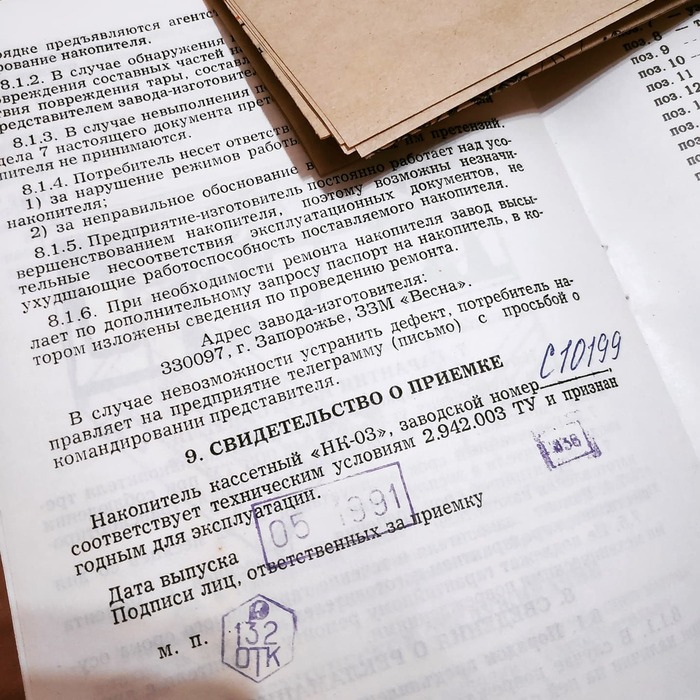 рядке предъявляются агентс
рование накопителя.
8.1.2. В случае обнаружения
вреждения составных частей
ствия повреждения тары, состав
редставителем завода-изготовител
8.1.3. В случае невыполнения
дела 7 настоящего документа прет
пителя не принимаются.
8.1.4. Потребитель несет ответств
1) за нарушение режимов работы
накопителя;
2) за неправильное обоснование в им претензий.
8.1.5. Предприятие-изготовитель постоянно работает над усо-
вершенствованием накопителя, поэтому возможны незначи-
тельные несоответствия эксплуатационных документов, не
ухудшающие работоспособность поставляемого накопителя.
8.1.6. При необходимости ремонта накопителя завод высы-
лает по дополнительному запросу паспорт на накопитель, в ко-
тором изложены сведения по проведению ремонта.
Адрес завода-изготовителя:
330097, г. Запорожье, ЗЗМ «Весна».
В случае невозможности устранить дефект, потребитель на-
правляет на предприятие телеграмму (письмо) с просьбой о
командировании представителя.
9. СВИДЕТЕЛЬСТВО О ПРИЕМКЕ
Накопитель кассетный «НК-03», заводской номер С10199,
соответствует техническим условиям 2.942.003 ТУ и признан
годным для эксплуатации.
838
05 1991
Дата выпуска
Подписи лиц, ответственных за приемку
м. п.
132
ОТК
поз. 8
поз. 9
поз. 10
поз. 11
поз. 12
поз.
поз.